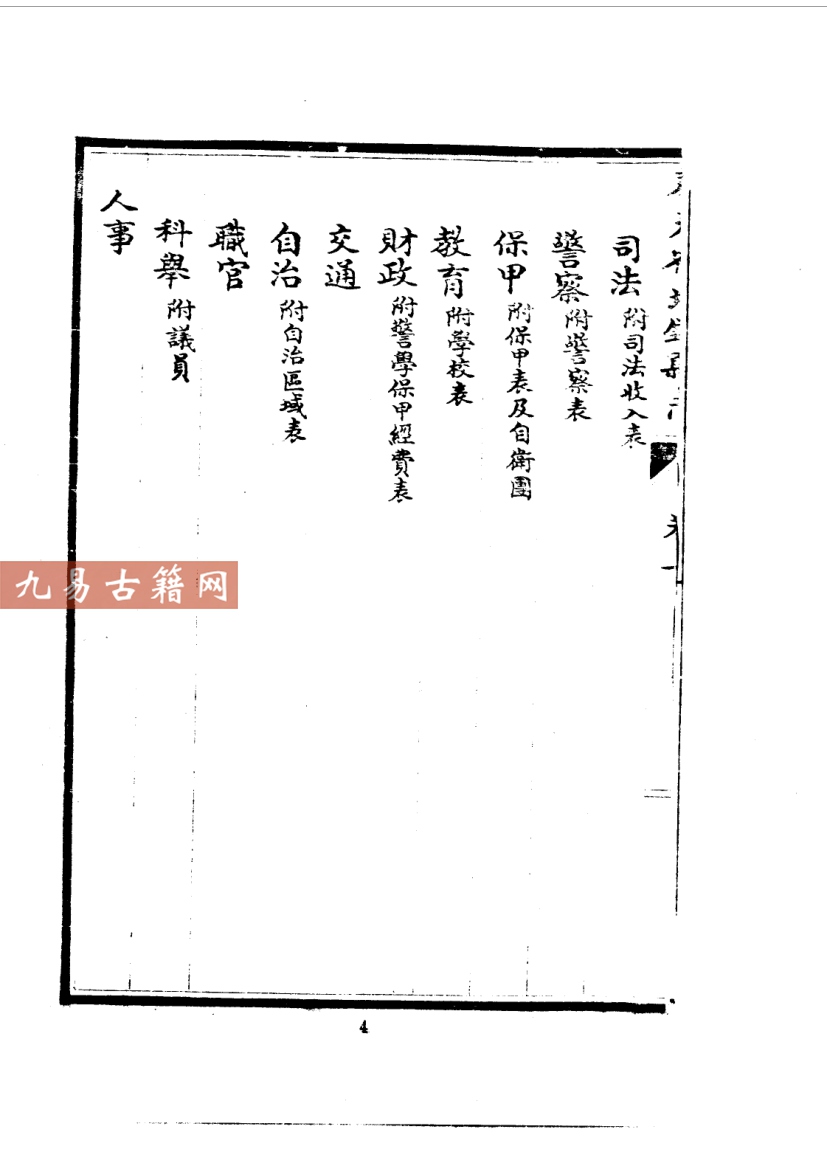 司法 附司法收入表
警察 附警察表
保甲 附保甲表及自衛團
教育 附學校表
財政 附警學保甲經費表
交通
自治 附自治區域表
職官
科舉 附議員
人事
九易古籍网
4